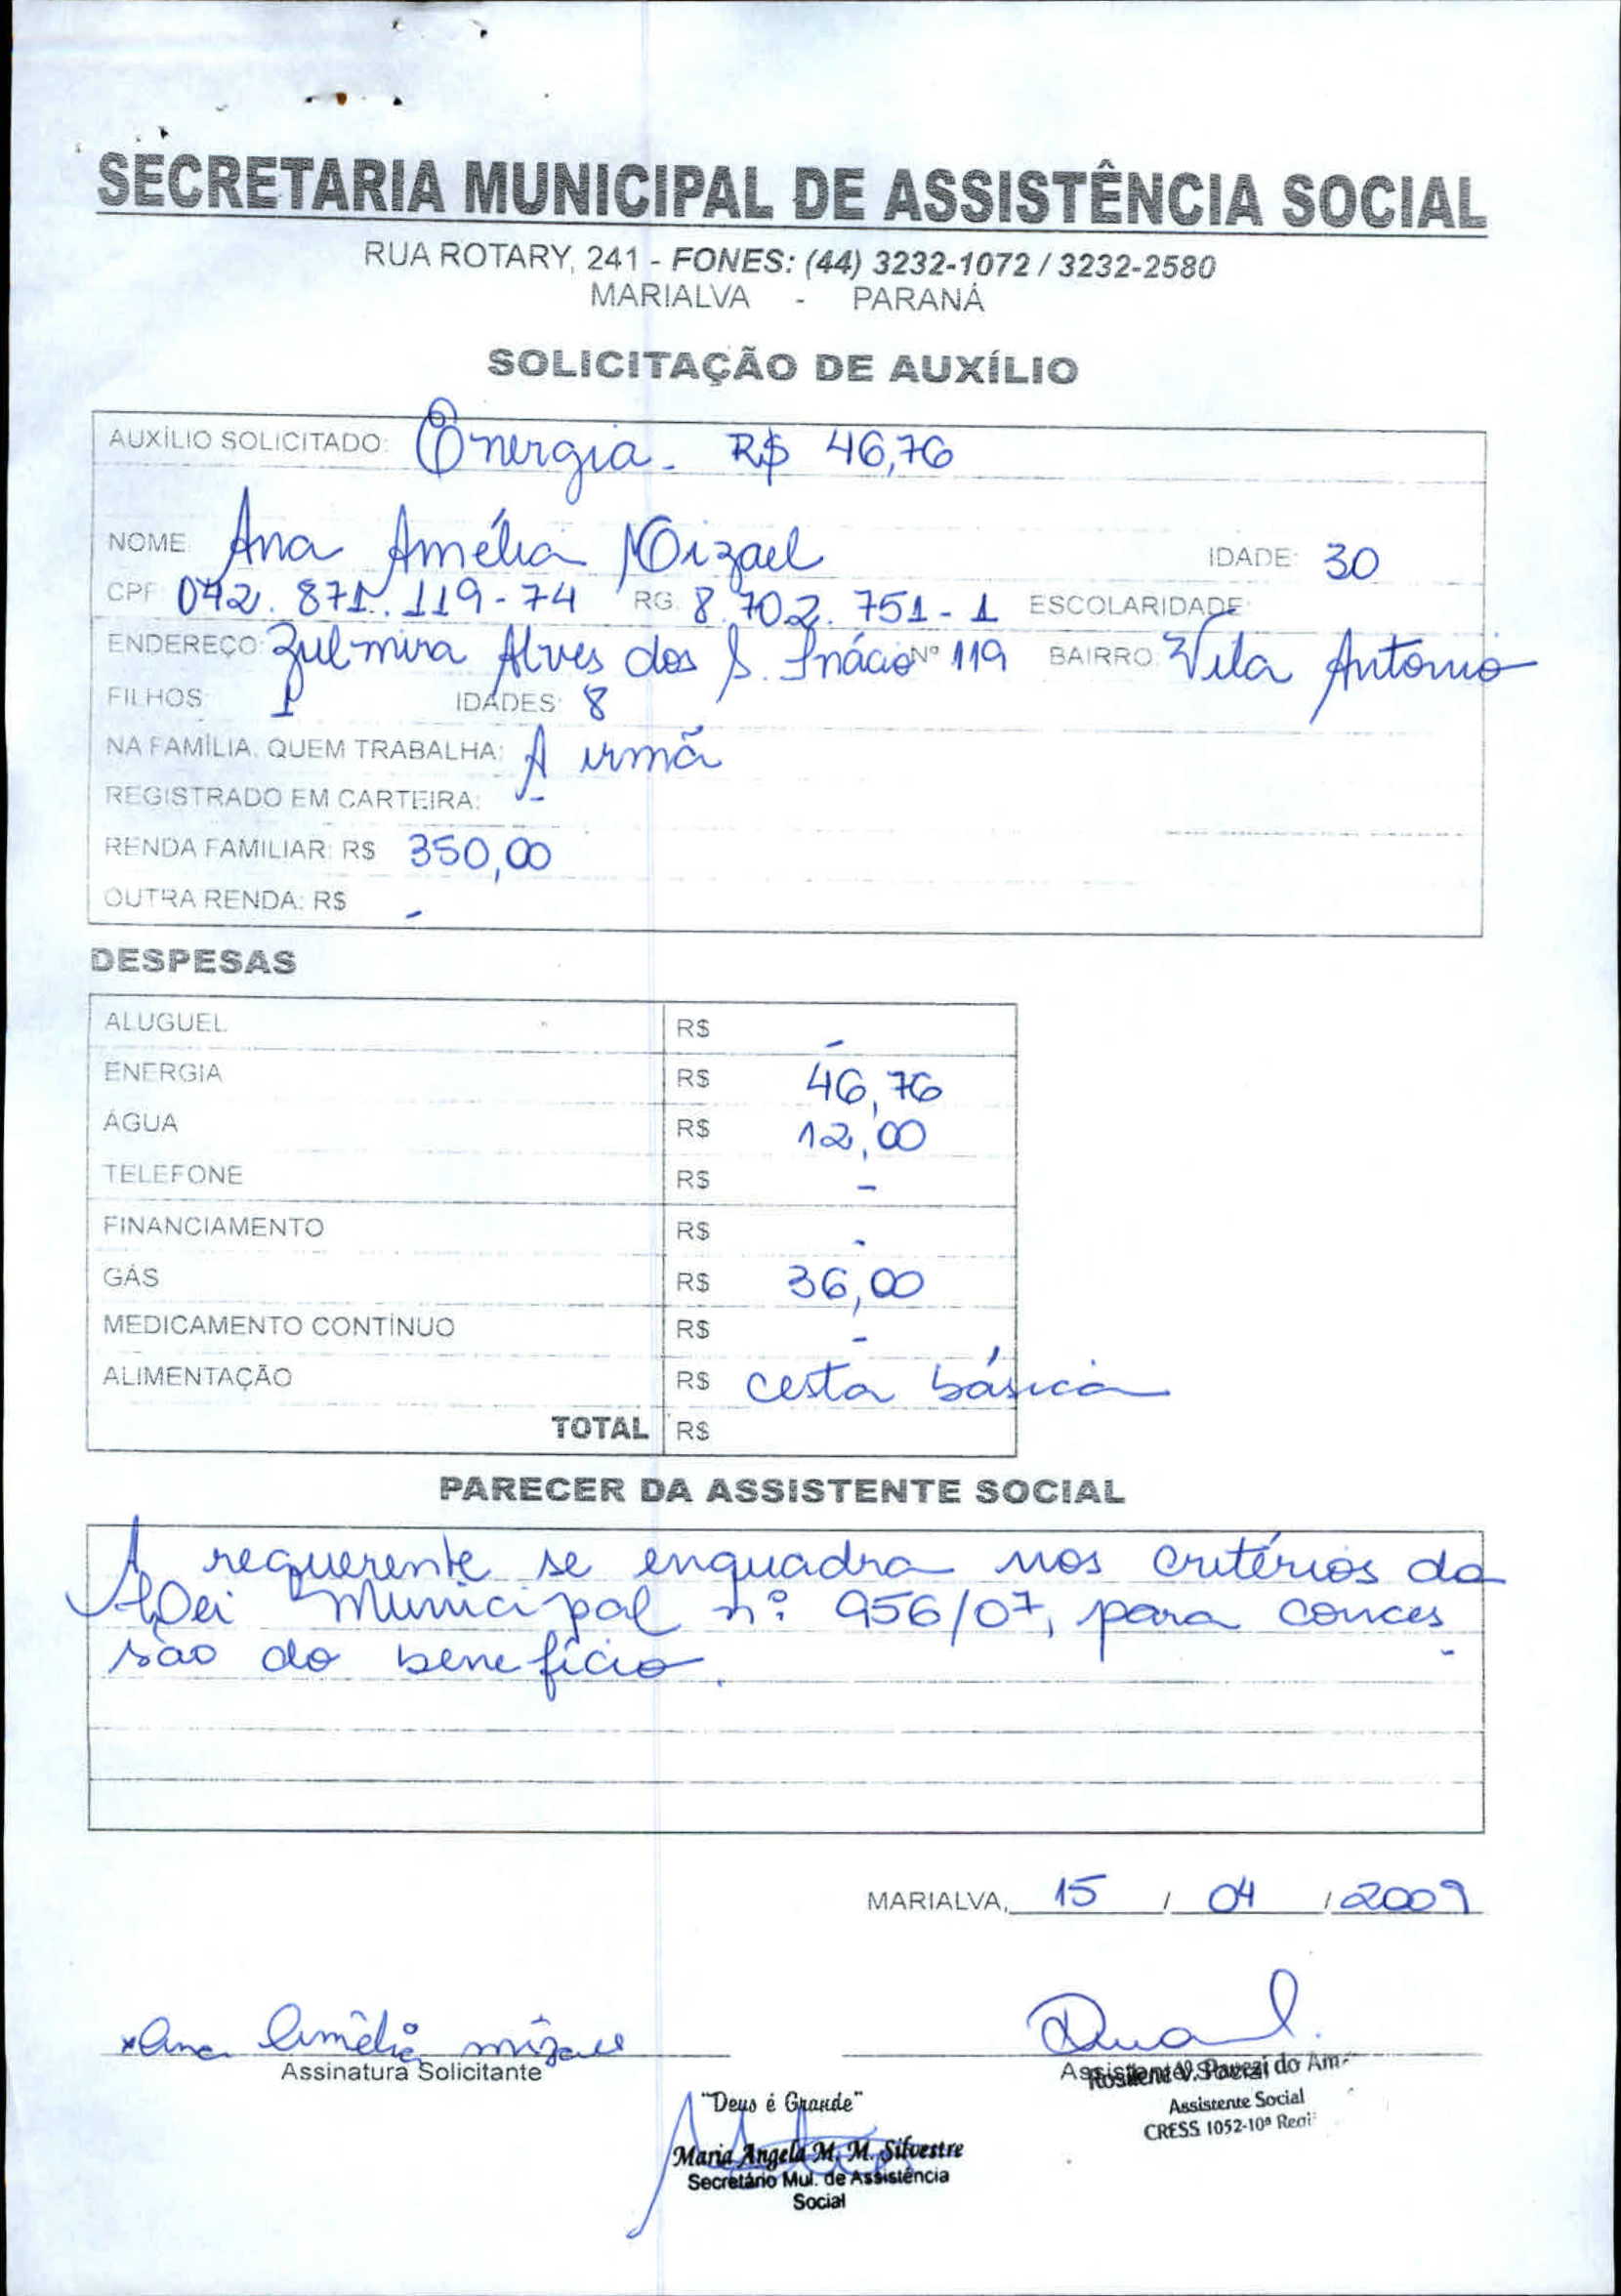 SECRETARIA MUNICIPAL DE ASSISTÊNCIA SOCIAL
RUA ROTARY, 241 - FONES: (44) 3232-1072 / 3232-2580
MARIALVA - PARANÁ
SOLICITAÇÃO DE AUXÍLIO
AUXÍLIO SOLICITADO: Energia - R$ 46,76
NOME: Ana Amélia Mizael IDADE: 30
CPF: 042.871.119-74 RG: 8.702.751-1 ESCOLARIDADE:
ENDEREÇO: Zulmira Alves dos S. Inácio Nº 119 BAIRRO: Vila Antônio
FILHOS: 1 IDADES: 8
NA FAMÍLIA, QUEM TRABALHA: A irmã
REGISTRADO EM CARTEIRA: -
RENDA FAMILIAR: R$ 350,00
OUTRA RENDA: R$ -
DESPESAS
ALUGUEL R$ -
ENERGIA R$ 46,76
ÁGUA R$ 12,00
TELEFONE R$ -
FINANCIAMENTO R$ -
GÁS R$ 36,00
MEDICAMENTO CONTÍNUO R$ -
ALIMENTAÇÃO R$ cesta básica
TOTAL R$
PARECER DA ASSISTENTE SOCIAL
A requerente se enquadra nos critérios da
Lei Municipal nº 956/07, para conces
são do benefício.
MARIALVA, 15 / 04 / 2009
x Ana Amélia mizael
Assinatura Solicitante
Assistente Social
V. Pavezi do Am
Assistente Social
CRESS 1052-10ª Regi
"Deus é Grande"
Maria Angela M. M. Silvestre
Secretário Mul. de Assistência
Social